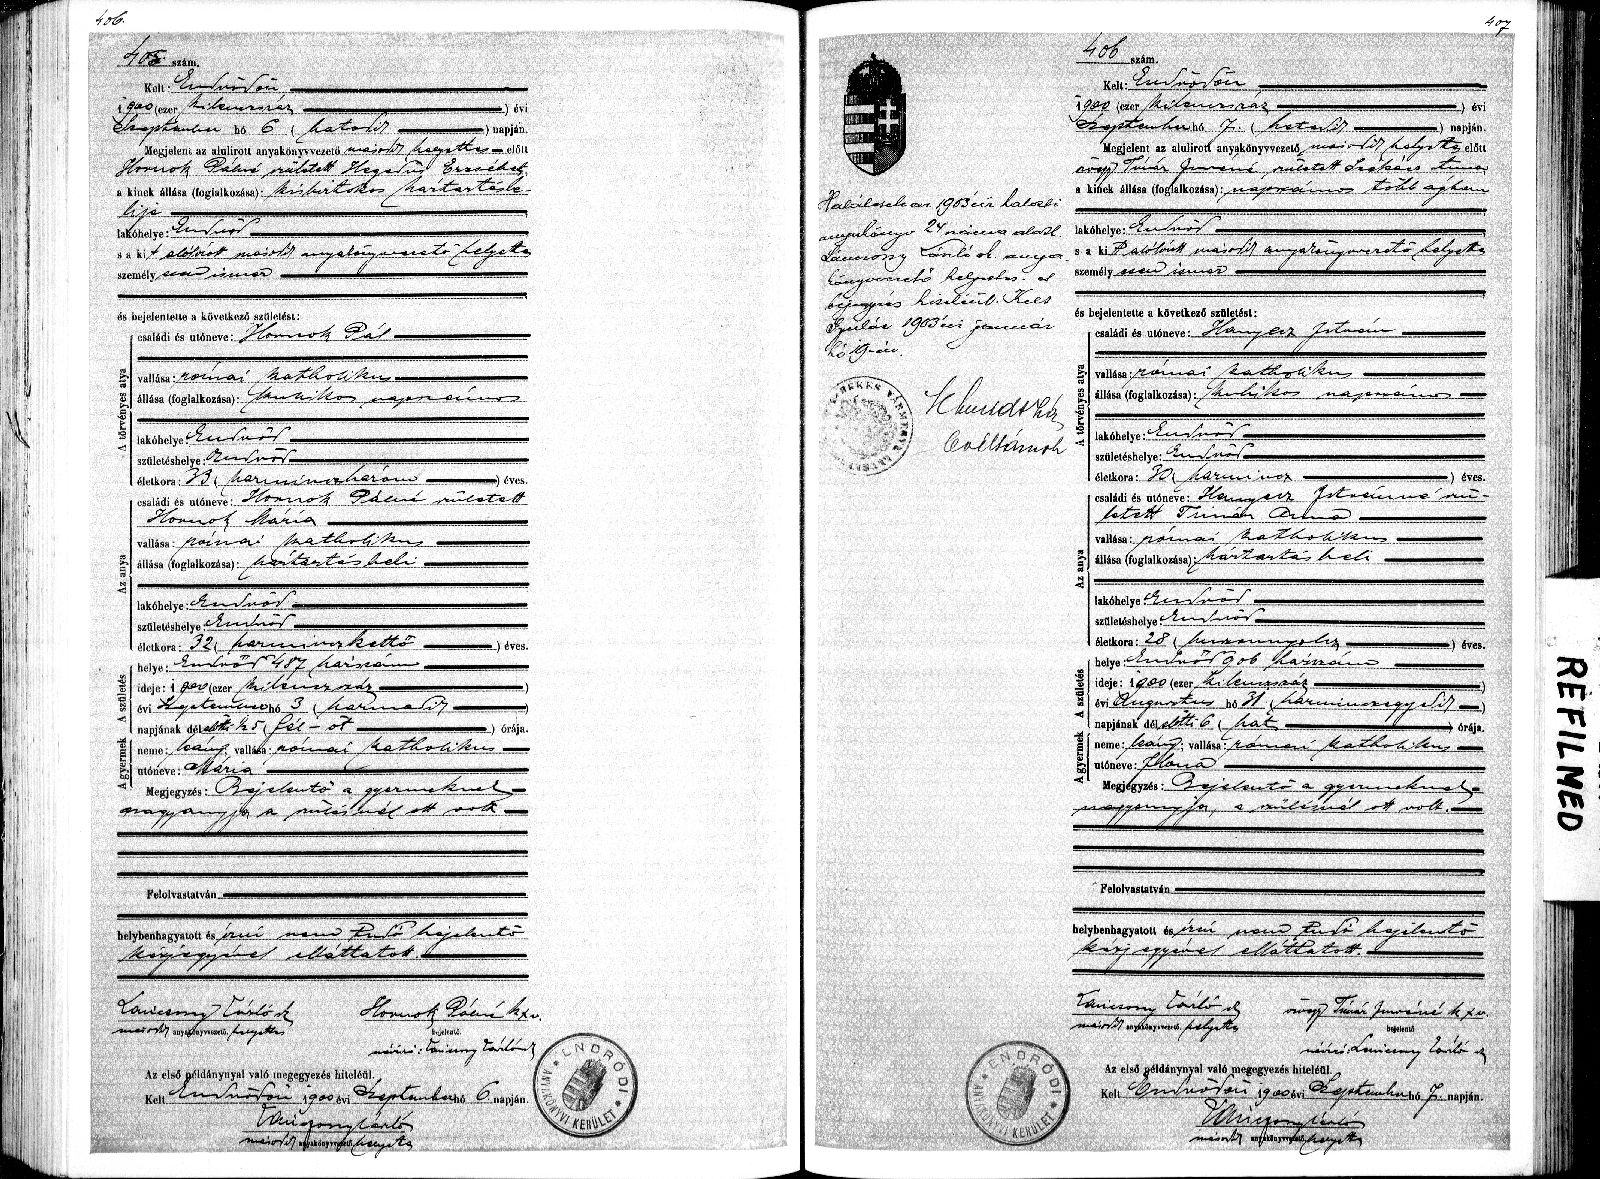 406.
405 szám.
Kelt: Endrődön,
1900 (ezer kilenszáz ) évi
Szeptember hó 6 ( hatodik ) napján.
Megjelent az alulirott anyakönyvvezető másodh helyettes előtt
Hornok Pálné született Hegedüs Erzsébet,
a kinek állása (foglalkozása): kisbirtokos háztartásbe-
lije
lakóhelye: Endrőd
s a kit alólirott másodh anyakönyvvezető helyettes
személyesen ismer
és bejelentette a következő születést:
A törvényes atya
családi és utóneve: Hornok Pál
vallása: római katholikus
állása (foglalkozása): kubikos napszámos
lakóhelye: Endrőd
születéshelye: Endrőd
életkora: 33 ( harminczhárom ) éves.
Az anya
családi és utóneve: Hornok Pálné született
Hornok Mária
vallása: római katholikus
állása (foglalkozása): háztartásbeli
lakóhelye: Endrőd
születéshelye: Endrőd
életkora: 32 ( harminczkettő ) éves.
A születés
helye: Endrőd 487 házszám
ideje: 1900 (ezer kilenszáz )
évi Szeptember hó 3 ( harmadik )
napjának dél előtti ½5 ( fél-öt ) órája.
A gyermek
neme: leány, vallása: római katholikus
utóneve: Mária
Megjegyzés: Bejelentő a gyermeknek
nagyanyja a szülésnél ott volt.
Felolvastatván
helybenhagyatott és írni nem tudó bejelentő
kézjegyével elláttatott.
Lancsony László Hornok Pálné k.x.v.
másodh anyakönyvvezető, helyettes bejelentő.
Az első példánynyal való megegyezés hiteléül.
Kelt Endrődön 1900 évi Szeptember hó 6 napján.
másodh anyakönyvvezető helyettes
ENDRŐDI ANYAKÖNYVI KERÜLET
407
1903 évi halotti
anyakönyv 24 száma alatt
László anya-
könyvvezető helyettes. a
bejegyzés hiteléül. Kelt
Gyulán 1903 évi január
hó 19-én.
BÉKÉS VÁRMEGYE
406 szám.
Kelt: Endrődön
1900 (ezer kilenszáz ) évi
Szeptember hó 7. ( hetedik ) napján.
Megjelent az alulirott anyakönyvvezető másodh helyettes előtt
özvegy Timár született Szakács
a kinek állása (foglalkozása): napszámos
lakóhelye: Endrőd
s a kit alólirott másodh anyakönyvvezető helyettes
személyesen ismer
és bejelentette a következő születést:
A törvényes atya
családi és utóneve: Hanyecz István
vallása: római katholikus
állása (foglalkozása): kubikos napszámos
lakóhelye: Endrőd
születéshelye: Endrőd
életkora: 30 ( harmincz ) éves.
Az anya
családi és utóneve: Hanyecz Istvánné szü-
letett Timár Anna
vallása: római katholikus
állása (foglalkozása): háztartásbeli
lakóhelye: Endrőd
születéshelye: Endrőd
életkora: 28 ( huszonnyolcz ) éves.
A születés
helye: Endrőd 906 házszám
ideje: 1900 (ezer kilenszáz )
évi Augusztus hó 31 ( harminczegyedik )
napjának dél előtti 6 ( hat ) órája.
A gyermek
neme: leány; vallása: római katholikus
utóneve: Ilona
Megjegyzés: Bejelentő a gyermeknek
nagyanyja, a szülésnél ott volt.
Felolvastatván
helybenhagyatott és írni nem tudó bejelentő
kézjegyével elláttatott.
Lancsony László özvegy Timár k.x.v.
másodh anyakönyvvezető, helyettes bejelentő
Az első példánynyal való megegyezés hiteléül.
Kelt Endrődön 1900 évi Szeptember hó 7. napján.
másodh anyakönyvvezető helyettes
ENDRŐDI ANYAKÖNYVI KERÜLET
REFILMED